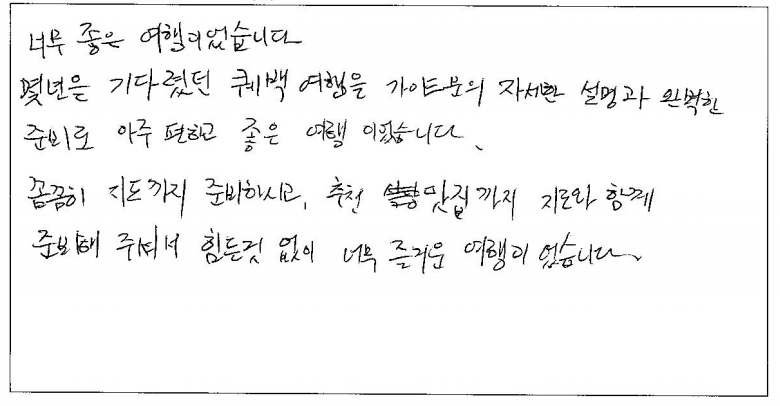 너무 좋은 여행이었습니다
몇년을 기다렸던 퀘백 여행을 가이드분의 자세한 설명과 완벽한
준비로 아주 편하고 좋은 여행 이었습니다.
꼼꼼히 지도까지 준비하시고, 추천 맛집까지 지도와 함께
준비해 주셔서 힘든것 없이 너무 즐거운 여행이 었습니다.